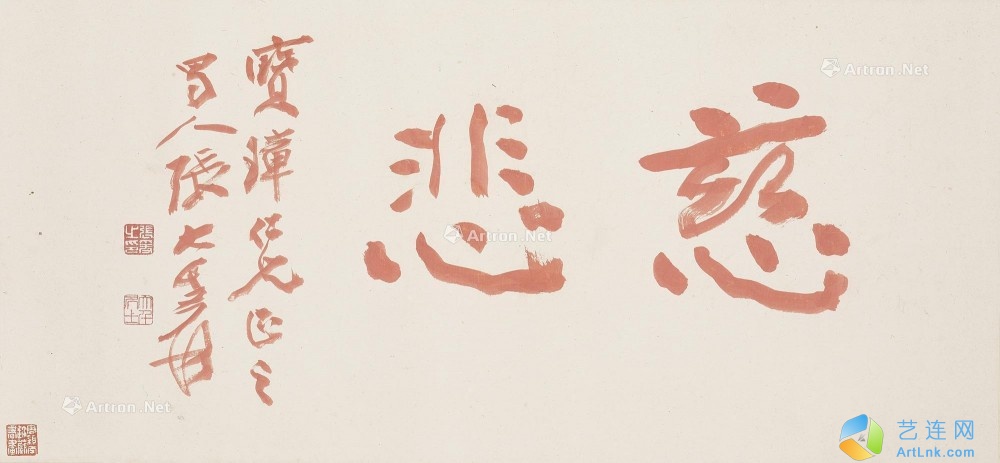 慈悲
寶璋仁兄正之
蜀人張大千爰
張爰之印
大千居士
Artron.Net
Artron.Net
Artron.Net
艺连网
ArtLnk.com